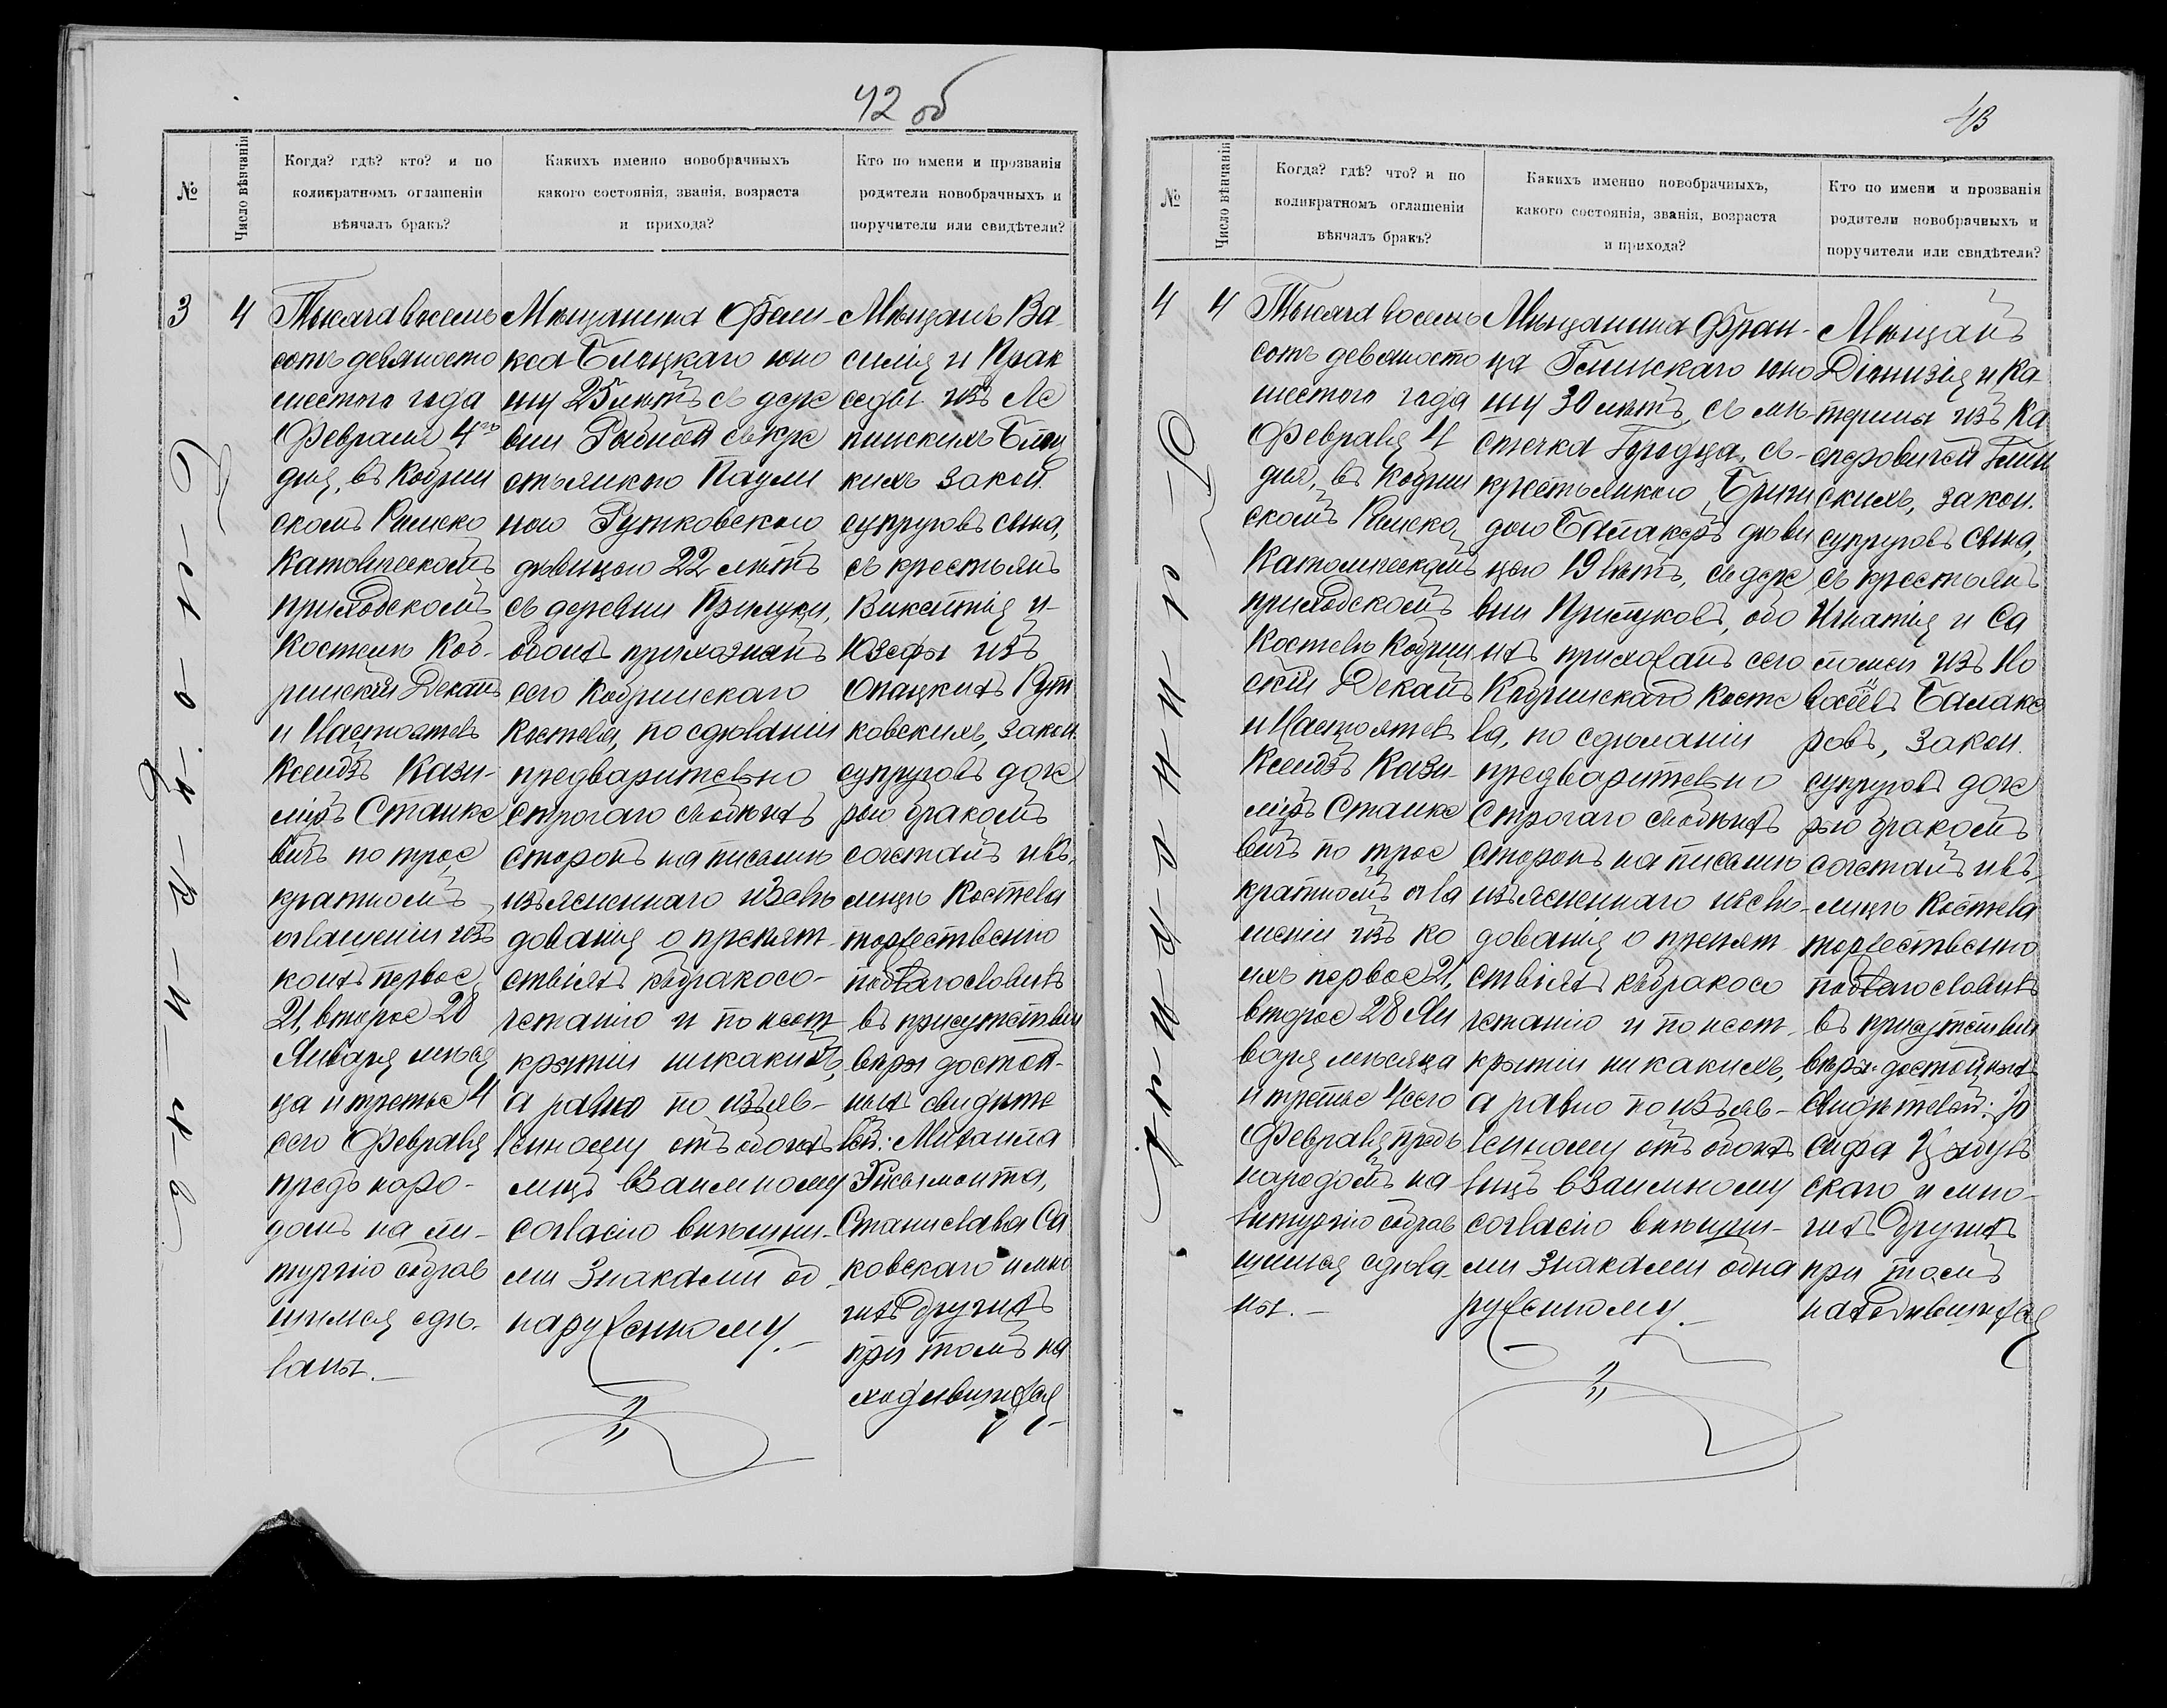 42 об
№
Число вѣнчанія
Когда? гдѣ? кто? и по
коликратномъ оглашеніи
вѣнчалъ бракъ?
Какихъ именно новобрачныхъ
какого состоянія, званія, возраста
и прихода?
Кто по имени и прозванія
родители новобрачныхъ и
поручители или свидѣтели?
3
4
Тысяча восемь
сотъ девяносто
шестого года
Февраля 4го
дня, въ Кобрин
скомъ Римско
Католическомъ
приходскомъ
Костелѣ Коб-
ринскій Деканъ
и Настоятель
Ксендзъ Кази-
міръ Станке
вичъ по трое
кратномъ
оглашеніи изъ
коихъ первое
21, второе 28
Января мѣся
ца и третье 4
сего Февраля
предъ наро-
домъ на ли-
тургію собрав
шимся сдѣ-
ланы.
Мѣщанина Фели-
кса Бѣлецкаго юно
шу 25 лѣтъ съ дере
вни съ кре
стьянкою Паули
ною Рутковскою
дѣвицею 22 лѣтъ
съ деревни Прилуки,
обоихъ прихожанъ
сего Кобринскаго
Костела, по сдѣланіи
предварительно
строгаго съ обѣихъ
сторонъ на письмѣ
изъясненнаго изслѣ
дованія о препят
ствіяхъ къ бракосо-
четанію и по неот
крытіи никакихъ,
а равно по изъяв-
ленному отъ обоихъ
лицъ взаимному
согласію внѣшни-
ми знаками об
наруженному.-
Мѣщанъ Ва
силія и Прак
седы изъ Ле
пинскихъ
кихъ закон.
супруговъ сына,
съ крестьянъ
Викентія и
Юзефы изъ
Опацкихъ Рут
ковскихъ, закон.
супруговъ доче
рью бракомъ
сочеталъ и въ
лицѣ Костела
торжественно
поблагословилъ
въ присутствіи
вѣры достой-
ныхъ свидѣте
лей: Михаила
Гисьмонта,
Станислава Са
ковскаго и мно
гихъ другихъ
при томъ на
ходившихся
43
№
Число вѣнчанія
Когда? гдѣ? что? и по
коликратномъ оглашеніи
вѣнчалъ бракъ?
Какихъ именно новобрачныхъ,
какого состоянія, званія, возраста
и прихода?
Кто по имени и прозванія
родители новобрачныхъ и
поручители или свидѣтели?
4
4
Тысяча восемь
сотъ девяносто
шестого года
Февраля 4
дня, въ Кобрин
скомъ Римско
Католическомъ
приходскомъ
Костелѣ Кобрин
скій Деканъ
и Настоятель
Ксендзъ Кази-
міръ Станке
вичъ по трое
кратномъ огла
шеніи изъ ко
ихъ первое 21,
второе 28 Ян
варя мѣсяца
и третье 4 сего
Февраля предъ
народомъ на
литургію собрав
шимся сдѣла-
ны.-
Мѣщанина Фран-
ца Глинскаго юно
шу 30 лѣтъ, съ мѣ-
стечка Городца, съ
крестьянкою Бриги
дою Балакеръ дѣви
цею 19 лѣтъ, съ дере
вни Прилуковъ, обо
ихъ прихожанъ сего
Кобринскаго Косте
ла, по сдѣланіи
предварительно
строгаго съ обѣихъ
сторонъ на письмѣ
изъясненнаго изслѣ-
дованія о препят
ствіяхъ къ бракосо
четанію и по неот-
крытіи никакихъ,
а равно по изъяв-
ленному отъ обоихъ
лицъ взаимному
согласію внѣшни-
ми знаками обна
руженному.-
Мѣщанъ
Діонизія и Ка-
терины изъ Ка
сперовичей Глин
скихъ, закон.
супруговъ сына,
съ крестьянъ
Игнатія и Са
ломеи изъ
Балаке
ровъ, закон.
супруговъ доче
рью бракомъ
сочеталъ и въ
лицѣ Костела
торжественно
поблагословилъ
въ присутствіи
вѣры достойныхъ
свидѣтелей: Іо
сифа
скаго и мно-
гихъ другихъ
при томъ
находившихся